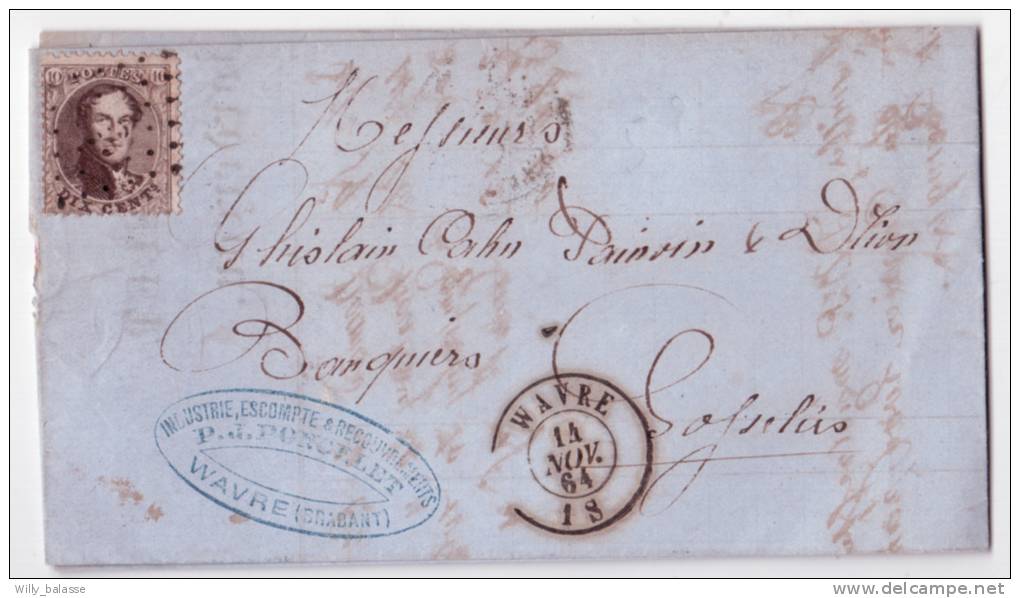 10 POSTES 10
DIX CENTS
Messieurs
Ghislain Cahn Painvin & Dlion
Banquiers
Gosselies
INDUSTRIE, ESCOMPTE & RECOUVREMENTS
P. J. PONCELET
WAVRE (BRABANT)
WAVRE
14
NOV.
64
1 S
Willy_balasse
delcampe.net